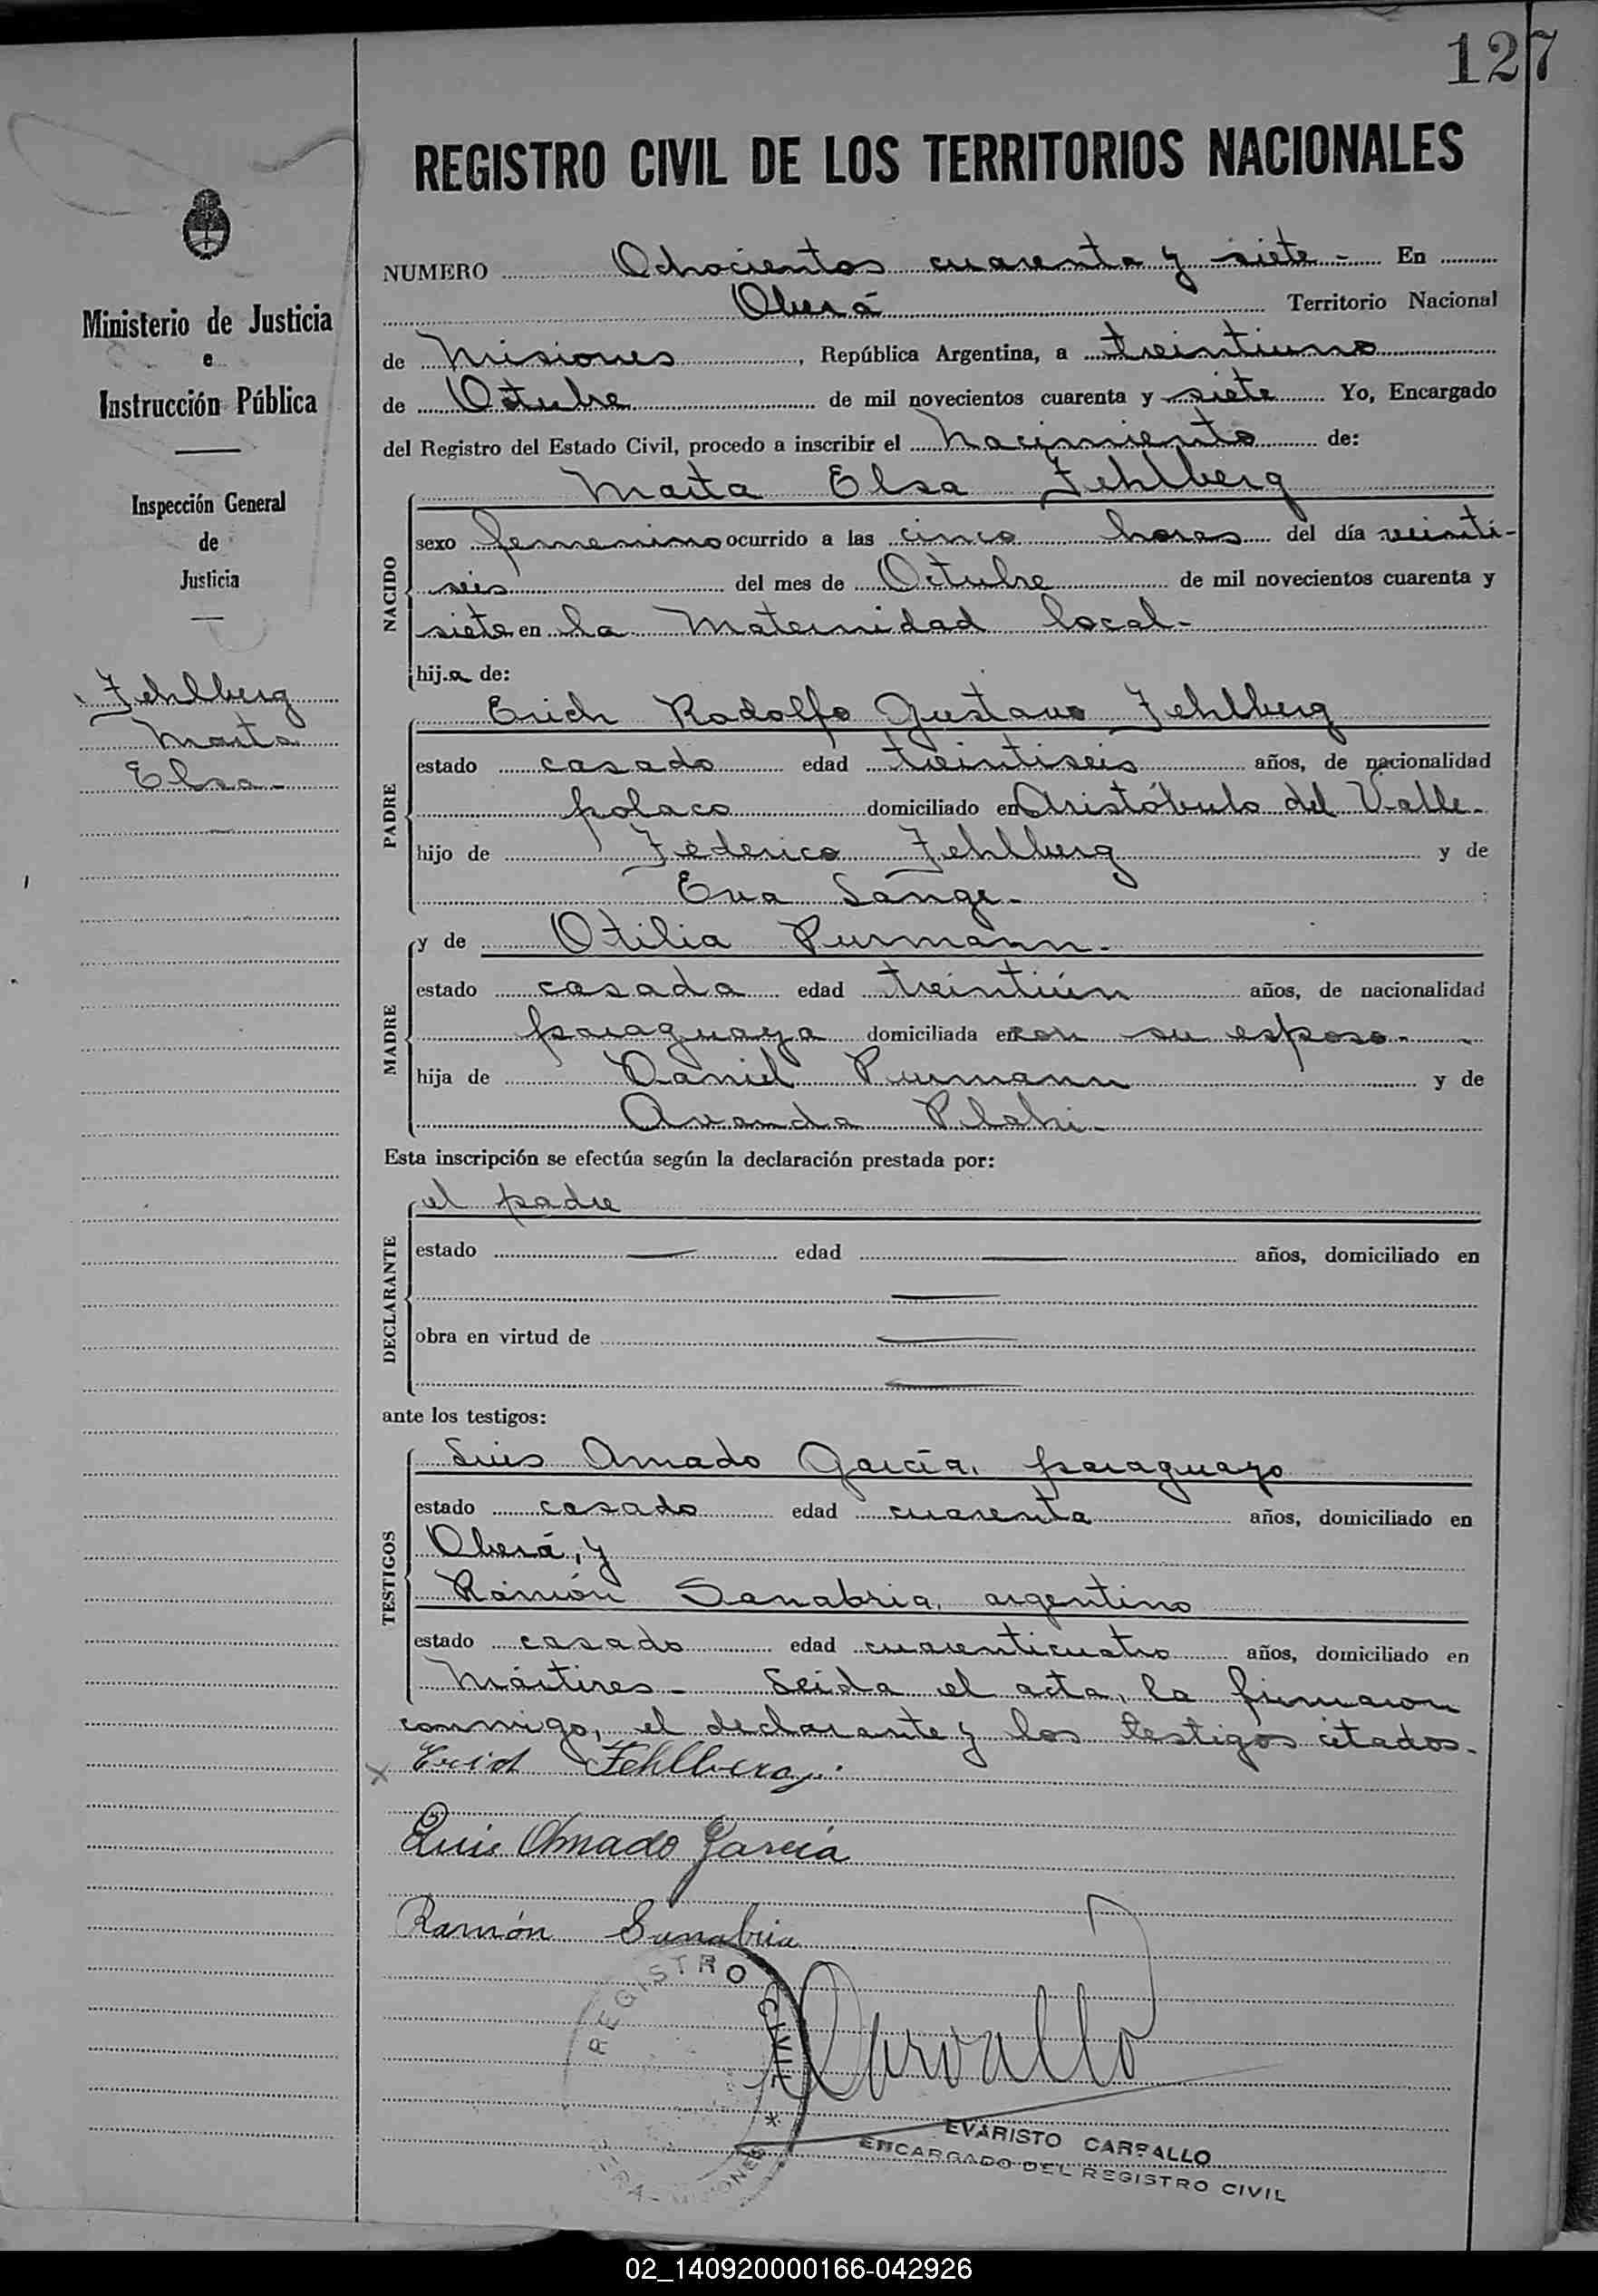 127
REGISTRO CIVIL DE LOS TERRITORIOS NACIONALES
Ministerio de Justicia
e
Instrucción Pública
Inspección General
de
Justicia
Fehlberg
Marta
Elsa-
NUMERO Ochocientos cuarenta y siete - En
Oberá Territorio Nacional
de Misiones, República Argentina, a treintiuno
de Octubre de mil novecientos cuarenta y siete Yo, Encargado
del Registro del Estado Civil, procedo a inscribir el nacimiento de:
NACIDO
Marta Elsa Fehlberg
sexo femenino ocurrido a las cinco horas del día veinti-
seis del mes de Octubre de mil novecientos cuarenta y
siete en la Maternidad local-
hija de:
PADRE
Erich Rodolfo Gustavo Fehlberg
estado casado edad treintiseis años, de nacionalidad
polaco domiciliado en Aristóbulo del Valle-
hijo de Federico Fehlberg y de
Eva Lange-
MADRE
y de Otilia Purmann-
estado casada edad treintiún años, de nacionalidad
paraguaya domiciliada en con su esposo-
hija de Daniel Purmann y de
Avanda
Esta inscripción se efectúa según la declaración prestada por:
DECLARANTE
el padre
estado — edad — años, domiciliado en
—
obra en virtud de —
—
ante los testigos:
TESTIGOS
Luis Amado García, paraguayo
estado casado edad cuarenta años, domiciliado en
Oberá, y
Ramón Sanabria, argentino
estado casado edad cuarenticuatro años, domiciliado en
Mártires- Leída el acta, la firmaron
conmigo, el declarante y los testigos citados-
x Erich Fehlberg
Luis Amado García
Ramón Sanabria
REGISTRO CIVIL *
Carvallo
EVARISTO CARBALLO
ENCARGADO DEL REGISTRO CIVIL
02_140920000166-042926